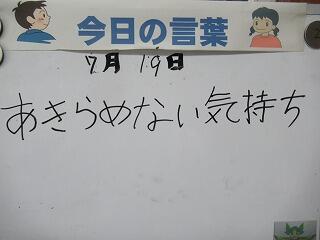 今日の言葉
7月19日
あきらめない気持ち